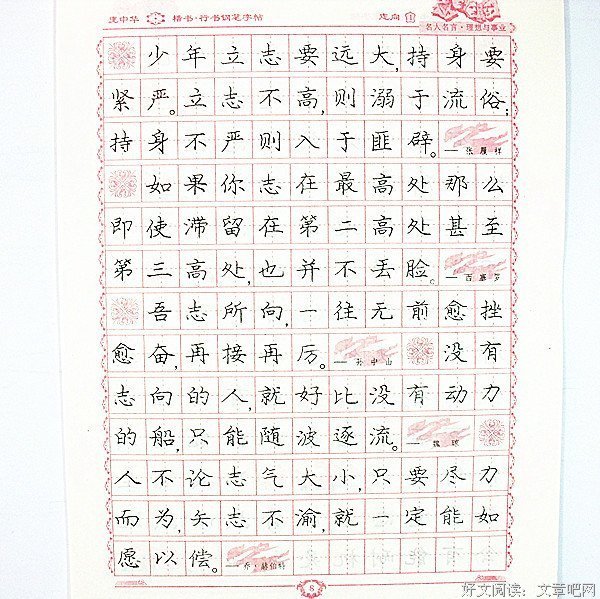 庞中华
楷书·行书钢笔字帖
志向
名人名言·理想与事业
少年立志要远大,持身要
紧严。立志不高,则溺于流俗;
持身不严则入于匪辟。——张履祥
如果你志在最高处那么
即使滞留在第二高处甚至
第三高处,也并不丢脸。——西塞罗
吾志所向,一往无前愈挫
愈奋,再接再厉。——孙中山
没有
志向的人,就好比没有动力
的船,只能随波逐流。——魏琼
人不论志气大小,只要尽力
而为,矢志不渝,就一定能如
愿以偿。——乔·赫伯特
8
好文阅读:文章吧网